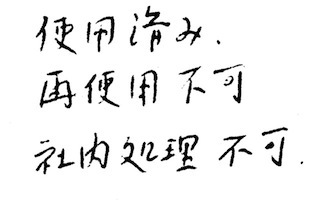 使用済み.
再使用不可
社内処理不可.